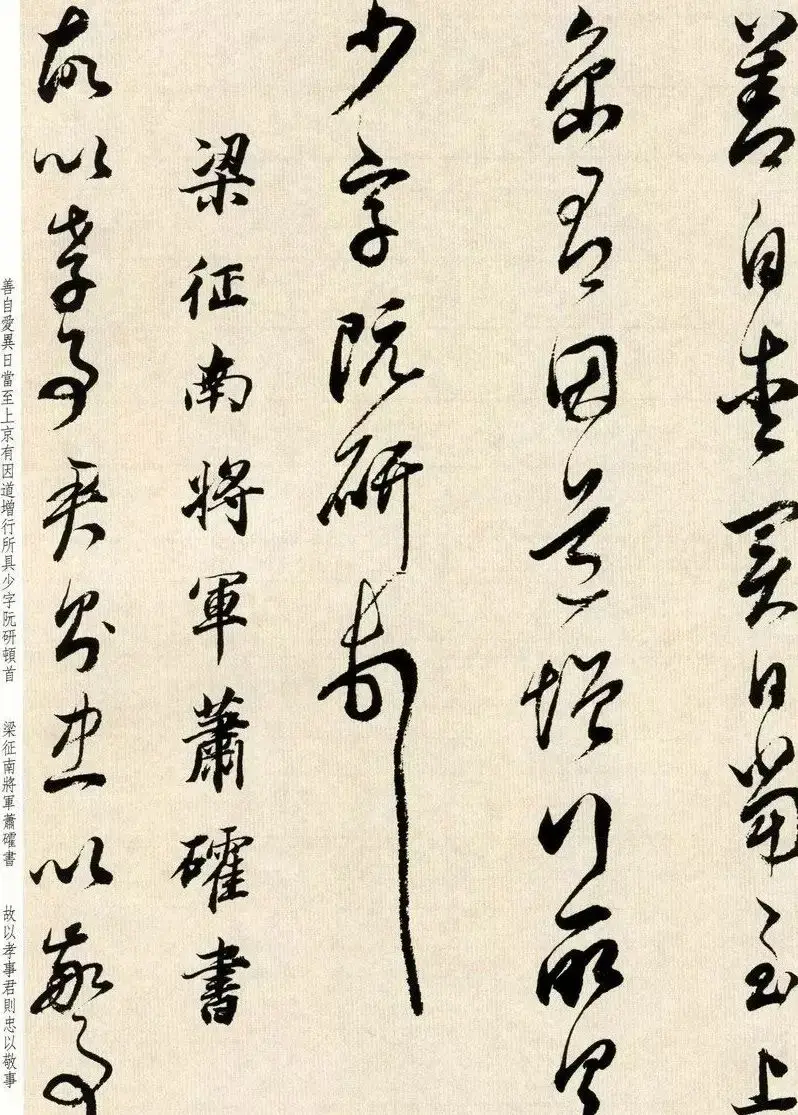 善自愛異日當至上
京有因道增行所具
少字阮研頓首
梁征南將軍蕭確書
故以孝事君則忠以敬事
善自愛異日當至上京有因道增行所具少字阮研頓首　梁征南將軍蕭確書　故以孝事君則忠以敬事